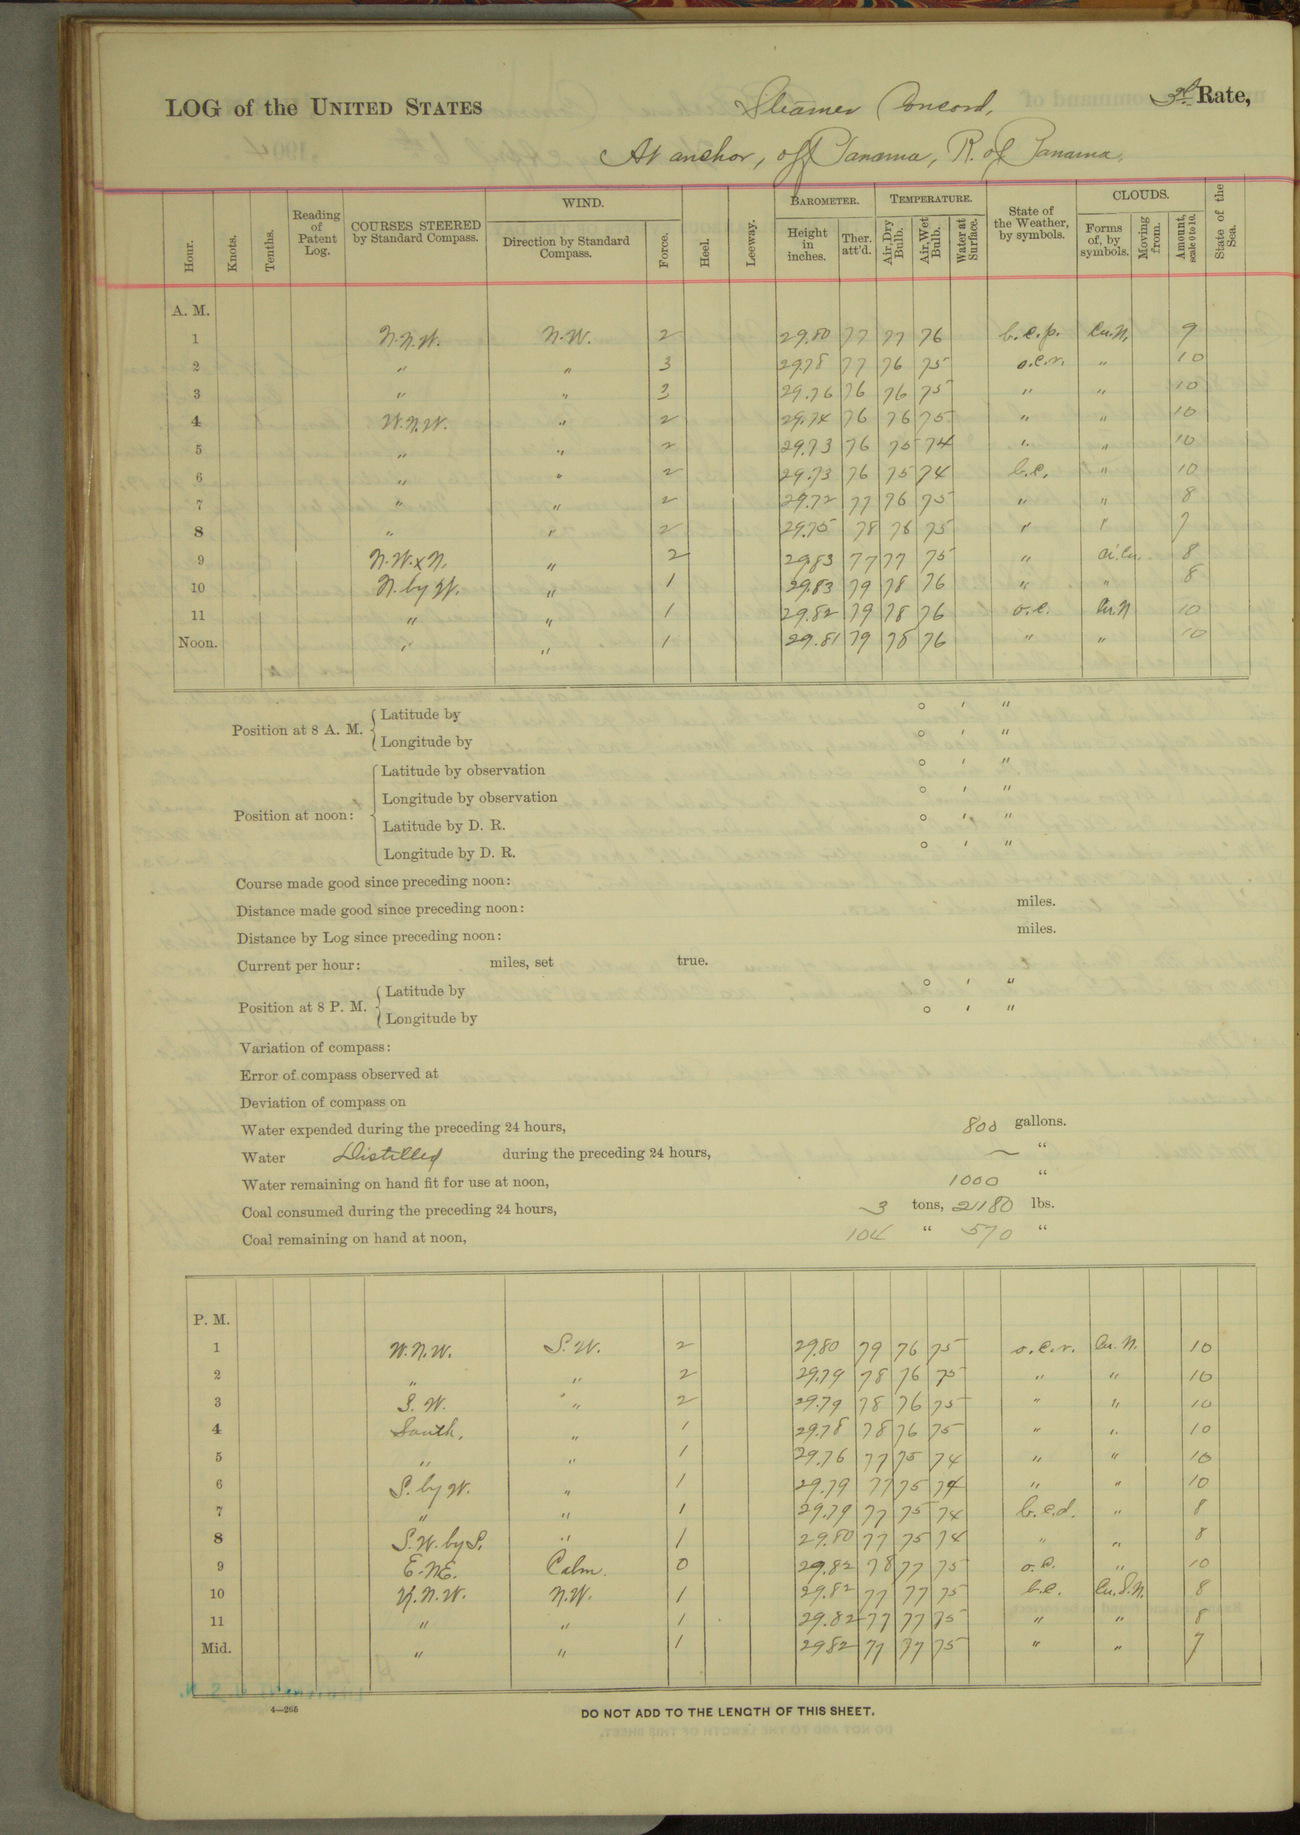 LOG of the UNITED STATES Steamer Concord, 3d Rate,
At anchor, off Panama, R. of Panama.
Hour. Knots. Tenths. Reading of Patent Log. COURSES STEERED by Standard Compass. WIND. Direction by Standard Compass. Force. Heel. Leeway. BAROMETER. Height in inches. Ther. att'd. TEMPERATURE. Air, Dry Bulb. Air, Wet Bulb. Water at Surface. State of the Weather, by symbols. CLOUDS. Forms of, by symbols. Moving from. Amount, scale 0 to 10. State of the Sea.
A. M.
1 N.N.W. N.W. 2 29.80 77 77 76 b.c.p. Cu.N. 9
2 " " 3 29.78 77 76 75 o.c.r. " 10
3 " " 3 29.76 76 76 75 " " 10
4 W.N.W. " 2 29.74 76 76 75 " " 10
5 " " 2 29.73 76 75 74 " " 10
6 " " 2 29.73 76 75 74 b.c. " 10
7 " " 2 29.72 77 76 75 " " 8
8 " " 2 29.75 78 76 75 " " 7
9 N.W.xN. " 2 29.83 77 77 75 " Ci.Cu. 8
10 N. by W. " 1 29.83 79 78 76 " " 8
11 " " 1 29.82 79 78 76 o.c. Cu.N 10
Noon. " " 1 29.81 79 78 76 " " 10
Position at 8 A. M. Latitude by ° ′ ″
Longitude by ° ′ ″
Position at noon: Latitude by observation ° ′ ″
Longitude by observation ° ′ ″
Latitude by D. R. ° ′ ″
Longitude by D. R. ° ′ ″
Course made good since preceding noon:
Distance made good since preceding noon: miles.
Distance by Log since preceding noon: miles.
Current per hour: miles, set true.
Position at 8 P. M. Latitude by ° ′ ″
Longitude by ° ′ ″
Variation of compass:
Error of compass observed at
Deviation of compass on
Water expended during the preceding 24 hours, 800 gallons.
Water Distilled during the preceding 24 hours, — "
Water remaining on hand fit for use at noon, 1000 "
Coal consumed during the preceding 24 hours, 3 tons, 2180 lbs.
Coal remaining on hand at noon, 104 " 570 "
P. M.
1 W.N.W. S.W. 2 29.80 79 76 75 o.c.r. Cu.N. 10
2 " " 2 29.79 78 76 75 " " 10
3 S.W. " 2 29.79 78 76 75 " " 10
4 South. " 1 29.78 78 76 75 " " 10
5 " " 1 29.76 77 75 74 " " 10
6 S. by W. " 1 29.79 77 75 74 " " 10
7 " " 1 29.79 77 75 74 b.c.d. " 8
8 S.W. by S. " 1 29.80 77 75 74 " " 8
9 E.NE. Calm. 0 29.82 78 77 75 o.c. " 10
10 N.W. 1 29.82 77 77 75 b.c. Cu.S.N. 8
11 " " 1 29.82 77 77 75 " " 8
Mid. " " 1 29.82 77 77 75 " " 7
4—266
DO NOT ADD TO THE LENGTH OF THIS SHEET.